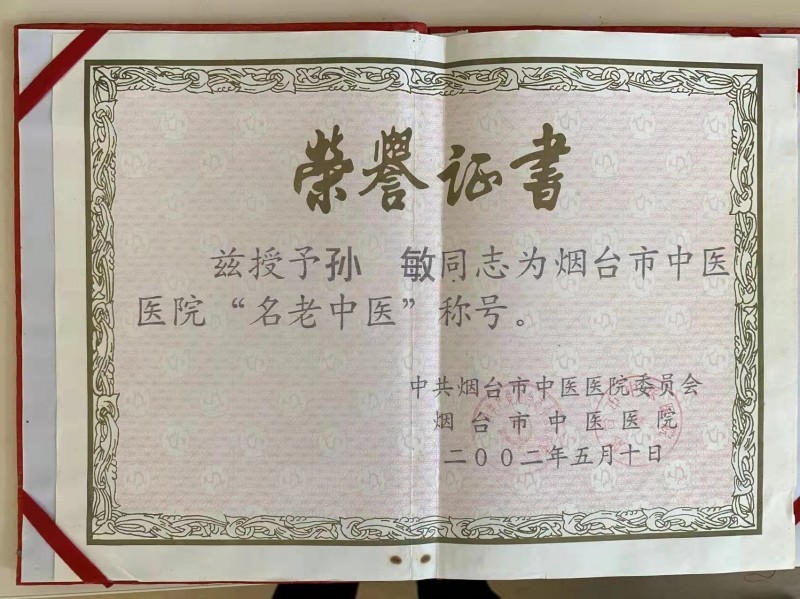 荣誉证书
兹授予孙 敏同志为烟台市中医
医院“名老中医”称号。
中共烟台市中医医院委员会
烟台市中医医院
二00二年五月十日